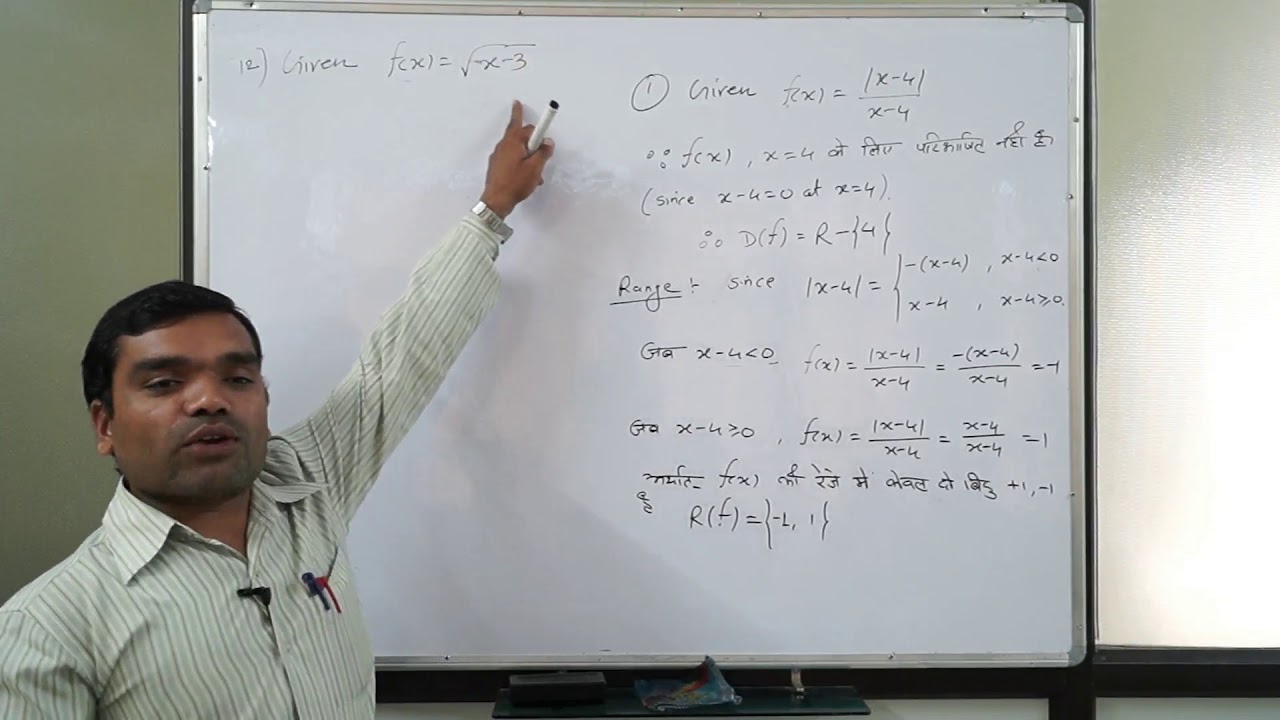 12) Given f(x) = √x-3
① Given f(x) = |x-4| / x-4
∵ f(x), x=4 के लिए परिभाषित नहीं है।
(since x-4=0 at x=4).
∴ D(f) = R-{4}
Range :- since |x-4| = { -(x-4) , x-4<0
x-4 , x-4≥0.
जब x-4<0, f(x) = |x-4| / x-4 = -(x-4) / x-4 = -1
जब x-4≥0 , f(x) = |x-4| / x-4 = x-4 / x-4 = 1
अर्थात f(x) की रेंज में केवल दो बिंदु +1, -1
है R(f) = {-1, 1}